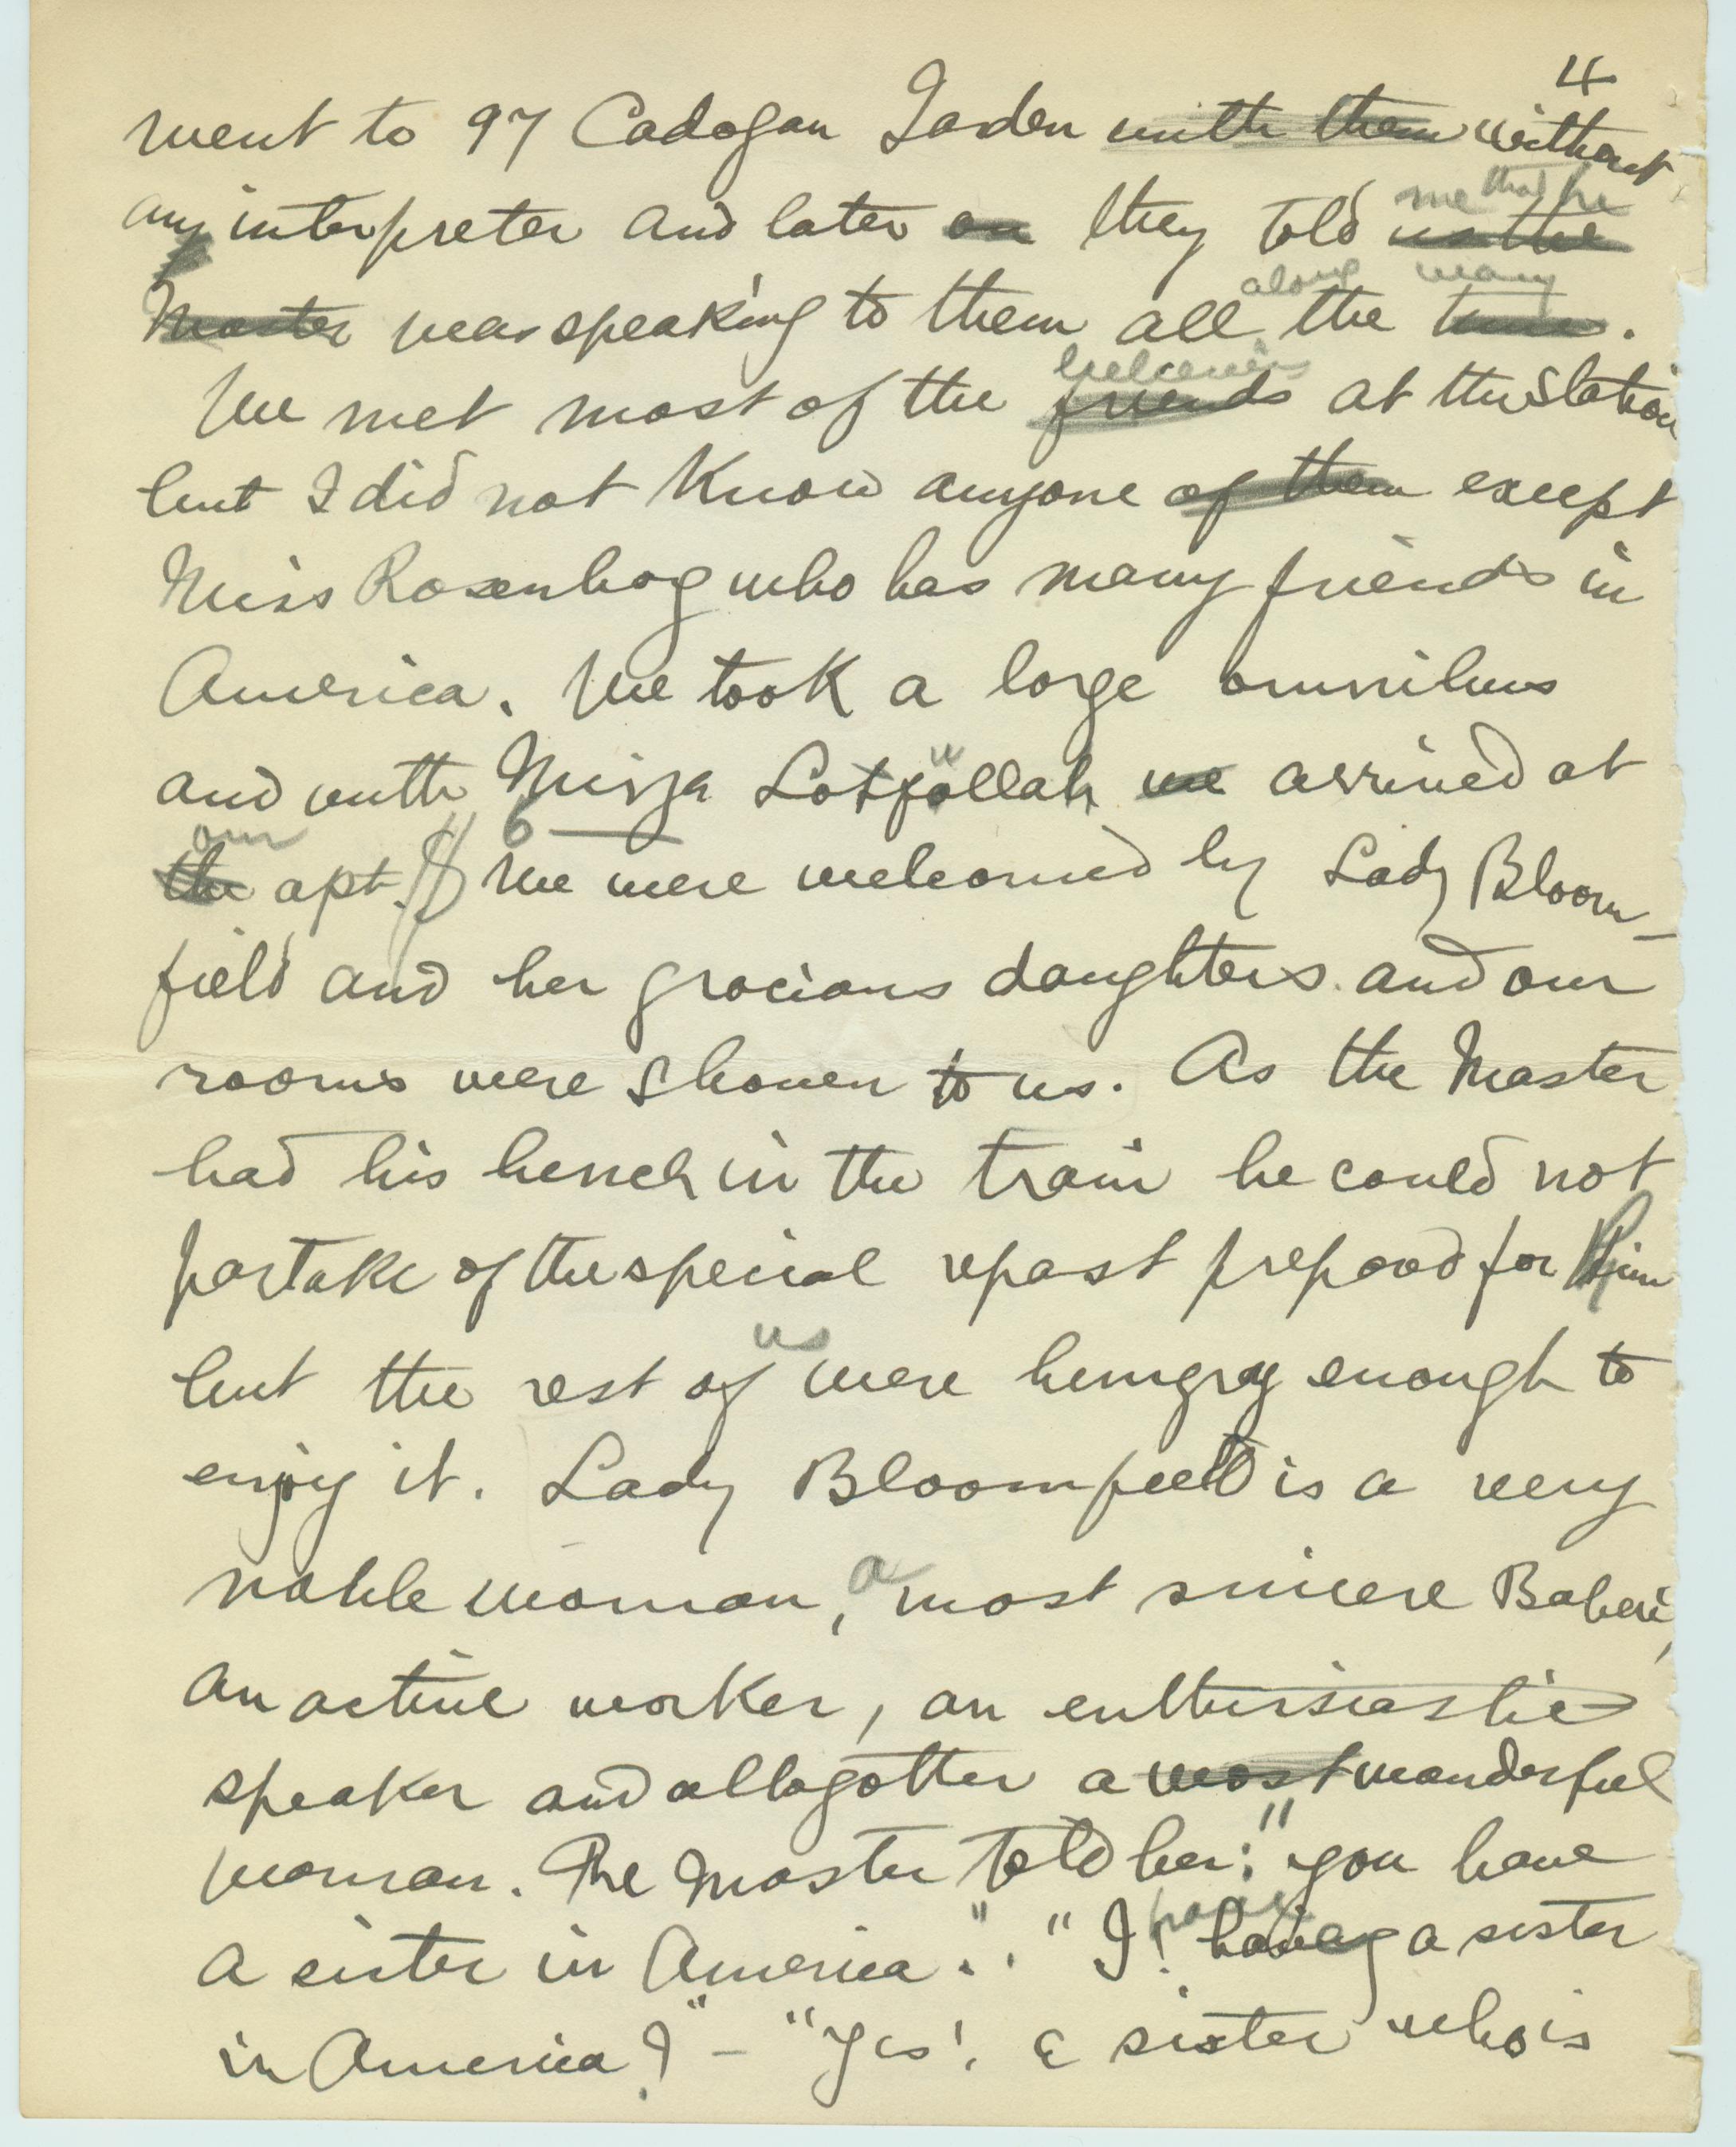 4
went to 97 Cadogan Garden with them without
any interpreter and later on they told us the me that he
Master was speaking to them all along the time way.
We met most of the friends believers at the Station
but I did not know anyone of them except
Miss Rosenbog who has many friends in
America. We took a large omnibus
and with Mirza Lotfullah we arrived at
the our apt. We were welcomed by Lady Bloom-
field and her gracious daughters and our
rooms were shown to us. As the Master
had his lunch in the train he could not
partake of the special repast prepared for Him
but the rest of us were hungry enough to
enjoy it. Lady Bloomfield is a very
noble woman, a most sincere Bahai,
an active worker, an enthusiastic
speaker and altogother a most wonderful
woman. The Master told her: "you have
a sister in America." "I! have a sister
in America?" - "Yes! a sister who is